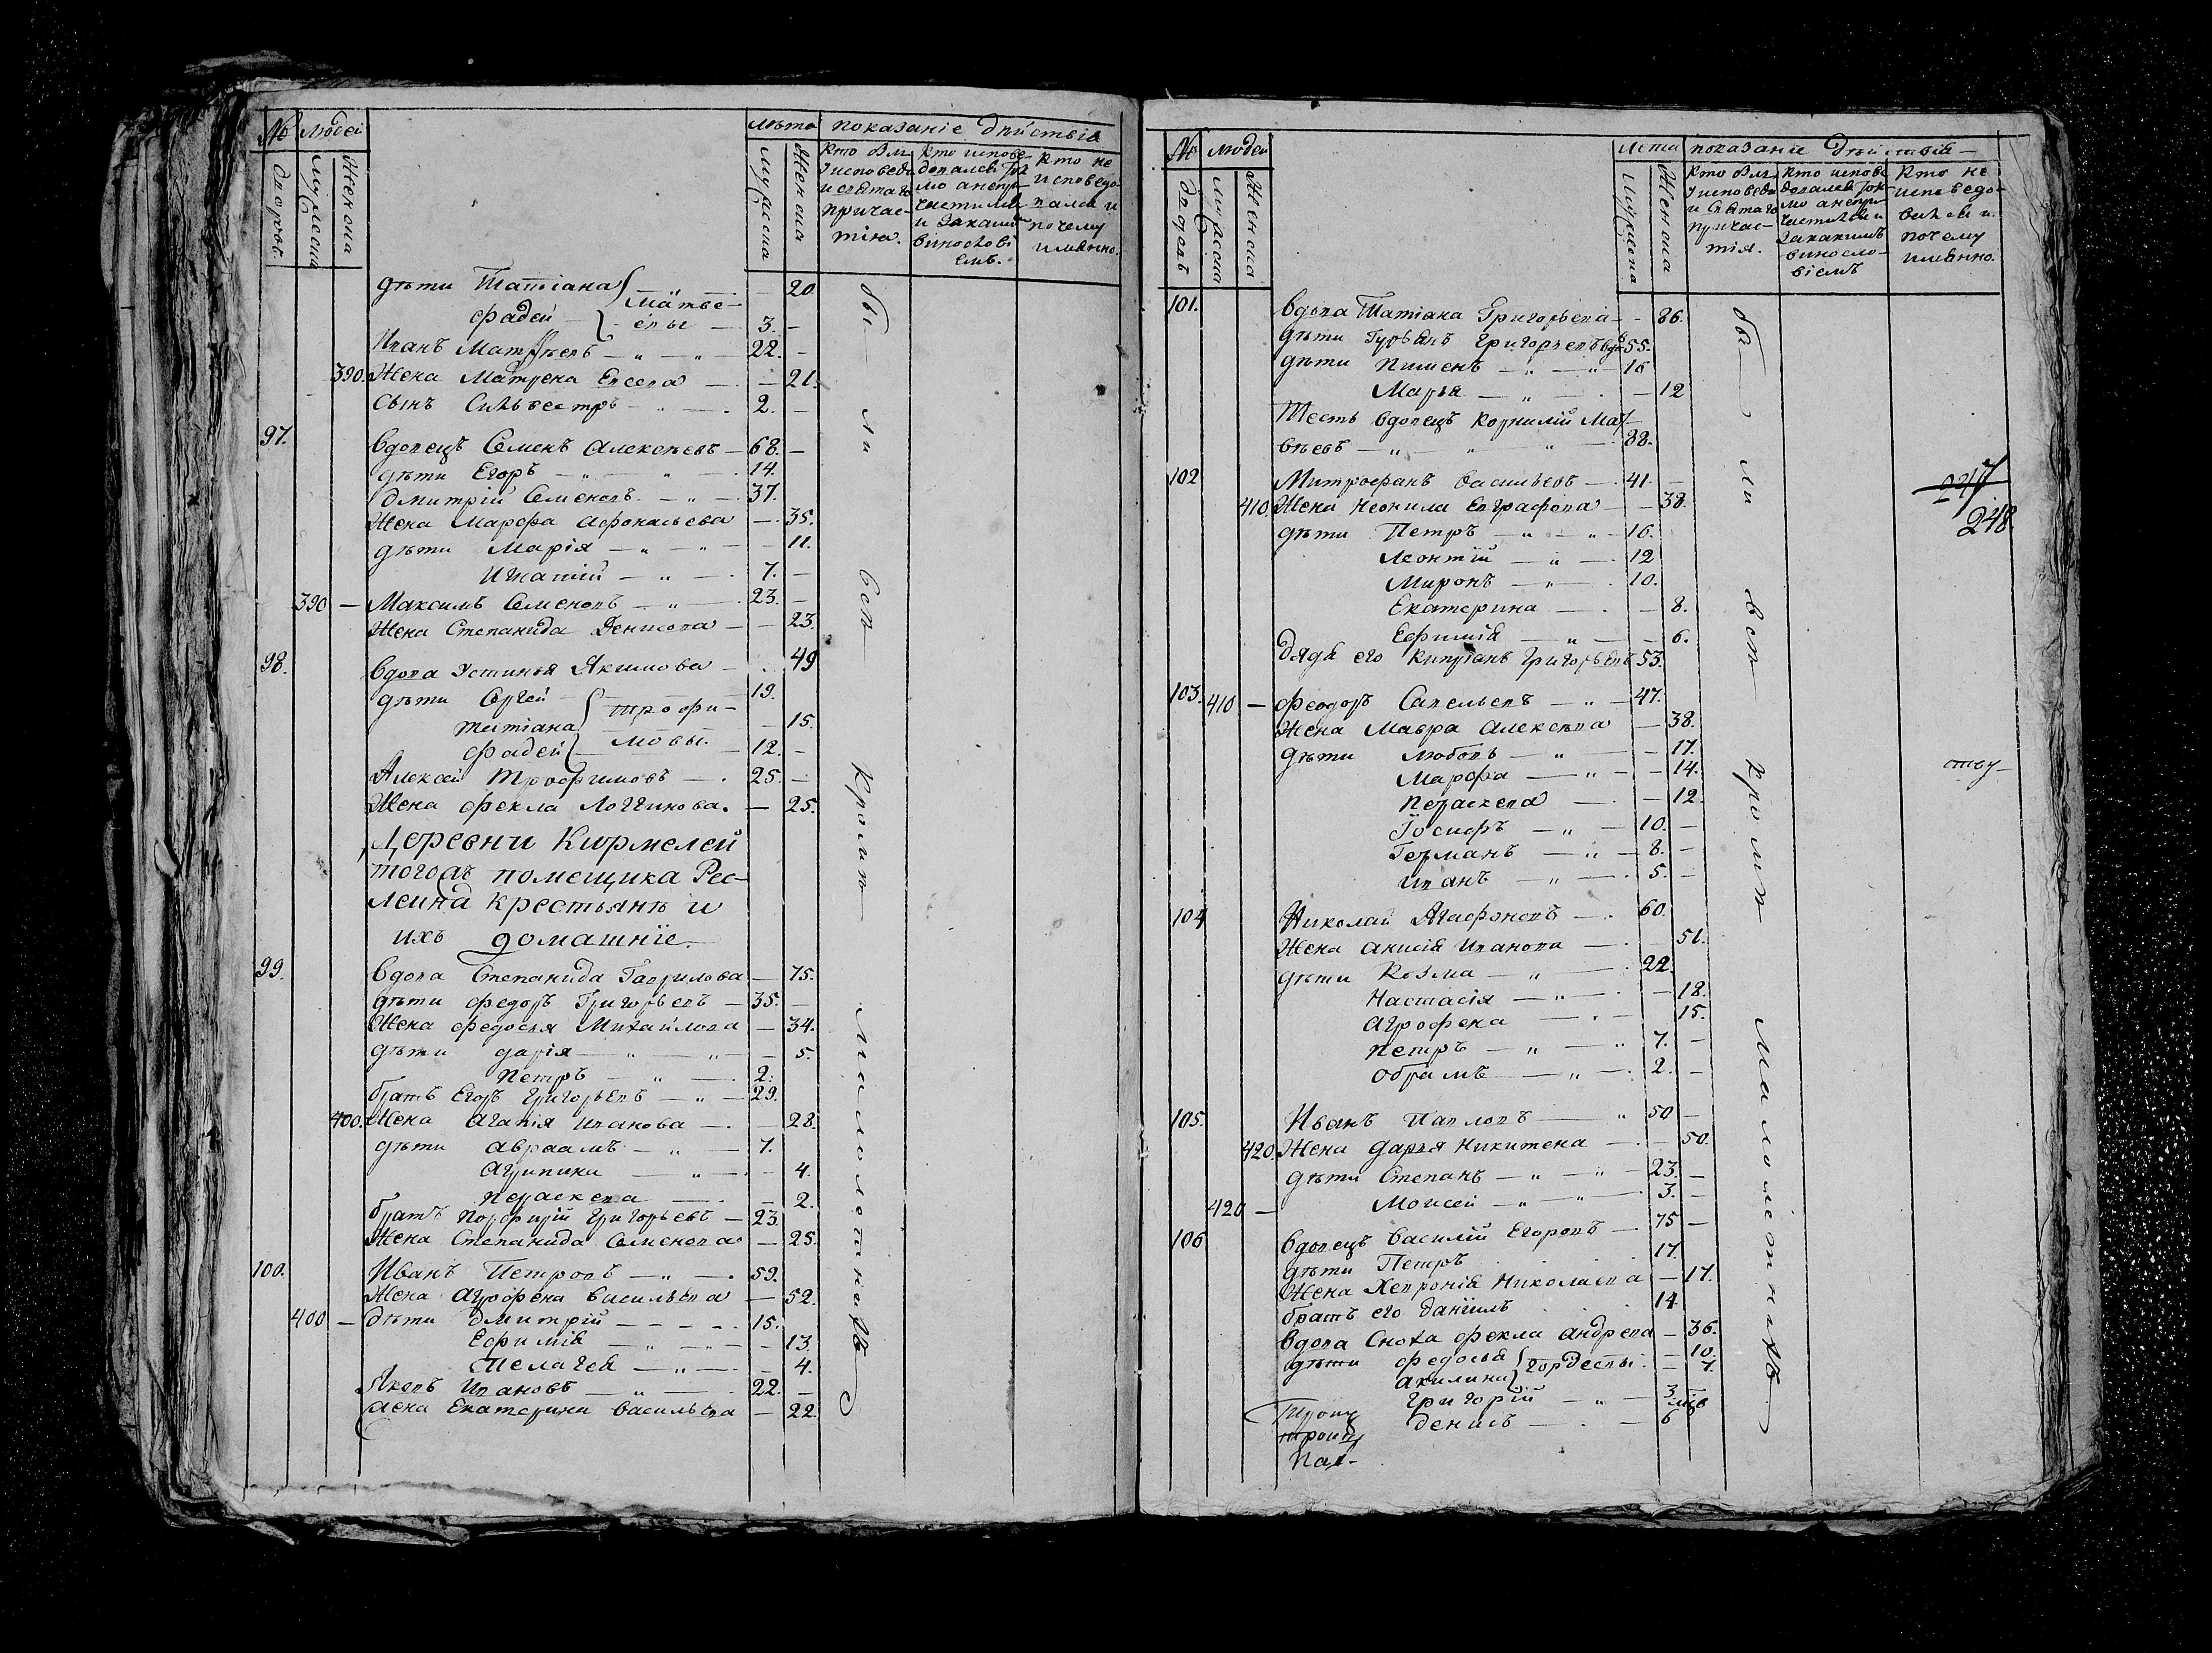 № людей лѣта показаніе дѣйствія
дворов. мужеска женска мужеска женска
кто был у исповеди и святаго причастія.
кто исповедовался ток мо а не причастился и за каким винословіемъ.
кто не исповедовался и почему имянно.
дѣти Татіана — 20
Матве-
фадей — евы — 3. —
Иванъ Матфѣевъ — „ — „ 22. —
390. Жена Матрена Евсева — — 21.
сынъ Сильвестръ — „ — 2. —
97. вдовецъ Семенъ Алексѣевъ — 68. —
дѣти Егоръ — „ — „ — 14.
Дмитрій Семеновъ — „ — 37.
Жена Марфа Афонасьева — 35.
дѣти Марія — „ — „ — 11.
Игнатій — „ — 7. —
390 — Максимъ Семеновъ — „ — 23. —
Жена Степанида Денисова — — 23.
98. вдова Устинья Якимова — 49
дѣти Сергей — 19.
Трофи-
татіана — 15.
фадей мовы. — 12. —
Алексей Трофимовъ — 25. —
Жена фекла Логгинова. — 25.
Деревни Кирмелей
тогоже помещика Рес-
леина крестьянѣ и
ихъ домашніе.
99. вдова Степанида Гаврилова — 75.
дѣти федоръ Григорьевъ — 35. —
Жена федосья Михайлова — 34.
дѣти дарія — „ — „ — 5.
Петръ — „ — 2.
братъ Егоръ Григорьевъ — „ — 29.
400. Жена Агапія Иванова — — 28.
дѣти авраамъ — „ — 7.
агрипина — „ — 4.
Параскева — — 2.
братъ Порфирій Григорьевъ — 23.
Жена Степанида Семенова — 25.
100. Иванъ Петровъ — „ — 59.
Жена Агрофена васильева — 52.
400 — дѣти дмитрій — — — 15.
Ефимія — „ — „ — 13.
Пелагея — „ — — 4.
Яковъ Ивановъ — „ — 22. —
жена Екатерина васильева — 22.
бы ли всѣ кромѣ малолѣтнихъ
№ людей лета показаніе дѣйствія —
дворовъ мужеска женска мужеска женска
кто был у исповеди и святаго причастія.
кто исповедовался ток мо а не причастился и за какимъ винословіемъ
кто не исповедовался и почему имянно.
101. вдова Татіана Григорьева — 86.
дѣти Гурьянъ Григорьевъ вдо 55.
дѣти Пименъ — „ — „ 16
Марья — „ — — 12
Тесть вдовецъ Корнилій Мат-
вѣевъ — „ — „ — „ — 88.
102 Митрофанъ васильевъ — 41. —
410 Жена Неонила Евграфова — — 38.
дѣти Петръ — „ — „ — 16.
Леонтій — „ — 12
Миронъ — „ — 10.
Екатерина — — 8.
Ефимія — „ — — 6.
дядя его Кипріанъ Григорьевъ 53.
103. 410 — феодоръ Савельевъ — „ — 47.
Жена Мавра Алексѣева — 38.
дѣти любовь — „ — — 17.
Марфа — „ — — 14.
Параскева — — 12.
Іосифъ — „ — 10. —
Германъ — „ — 8. —
иванъ — „ — 5. —
104 Николай Агафоновъ — 60.
Жена анисія Иванова — — 51.
дѣти Козма — „ — 22.
Настасія — „ — — 18.
Агрофена — „ — 15.
Петръ — „ — „ 7. —
обрамъ — „ — 2. —
105. Иванъ Павловъ — „ 50 —
420. Жена Дарья Никитена — — 50.
дѣти Степанъ — „ — „ — 23. —
420 — Моисей — „ — „ — 3. —
106 вдовецъ василій Егоровъ — 75 —
дѣти Петръ 17.
Жена Хевронія Николаева — 17.
братъ его даніилъ 14.
вдова Сноха фекла андрева — 36.
дѣти федосья — 10.
акилина гордеевы. — 7.
Григорій — „ — 3.
денисъ — 6
троиц
Пав-
бы ли всѣ кромѣ малолѣтнихъ
247
248